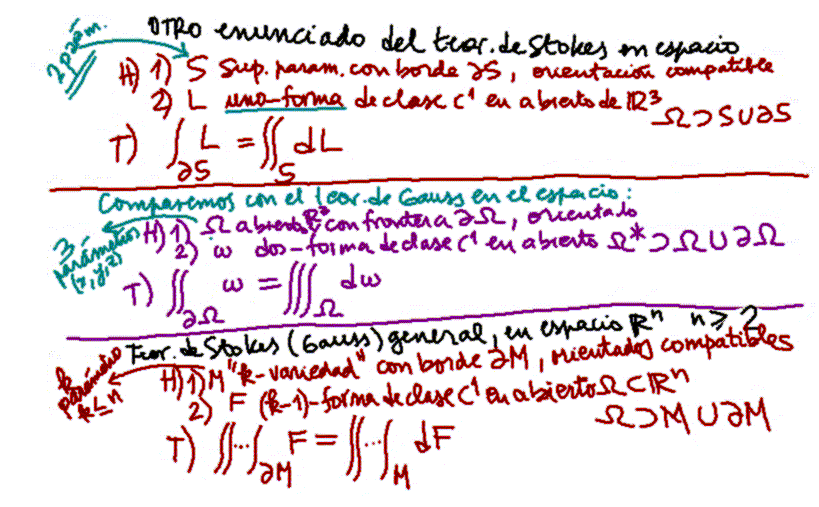 OTRO enunciado del teor. de Stokes en espacio
2 parám.
H) 1) S Sup. param. con borde ∂S, orientación compatible
2) L uno-forma de clase C¹ en abierto de ℝ³ Ω⊃S∪∂S
T) ∫_∂S L = ∬_S dL
Comparemos con el teor. de Gauss en el espacio:
3 parámetros (x,y,z)
H) 1) Ω abierto ℝ³ con frontera ∂Ω, orientado
2) ω dos-forma de clase C¹ en abierto Ω*⊃Ω∪∂Ω
T) ∬_∂Ω ω = ∭_Ω dω
Teor. de Stokes (Gauss) general, en espacio ℝⁿ n⩾2
k parámetros k≤n
H) 1) M "k-variedad" con borde ∂M, orientados compatibles
2) F (k-1)-forma de clase C¹ en abierto Ω⊂ℝⁿ
Ω⊃M∪∂M
T) ∬···∫_∂M F = ∬···∫_M dF